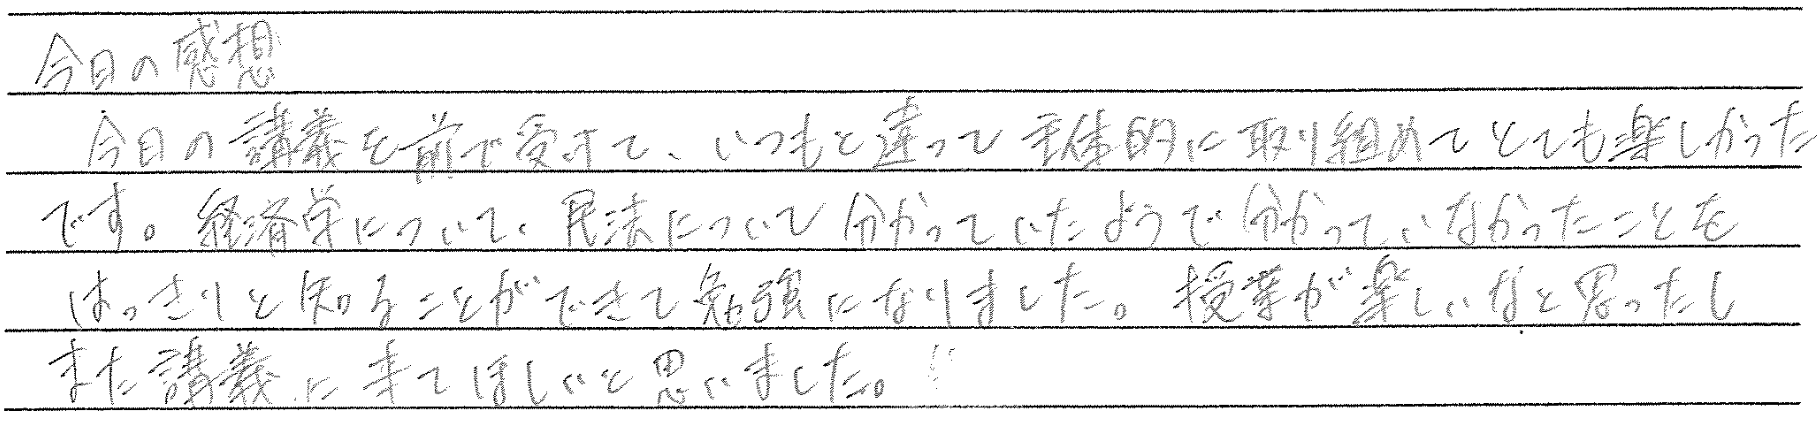 今日の感想
今日の講義を前で受けて、いつもと違って主体的に取り組めてとても楽しかった
です。経済学について、民法について分かっていたようで分かっていなかったことを
はっきりと知ることができて勉強になりました。授業が楽しいなと思ったし
また講義に来てほしいと思いました。!!